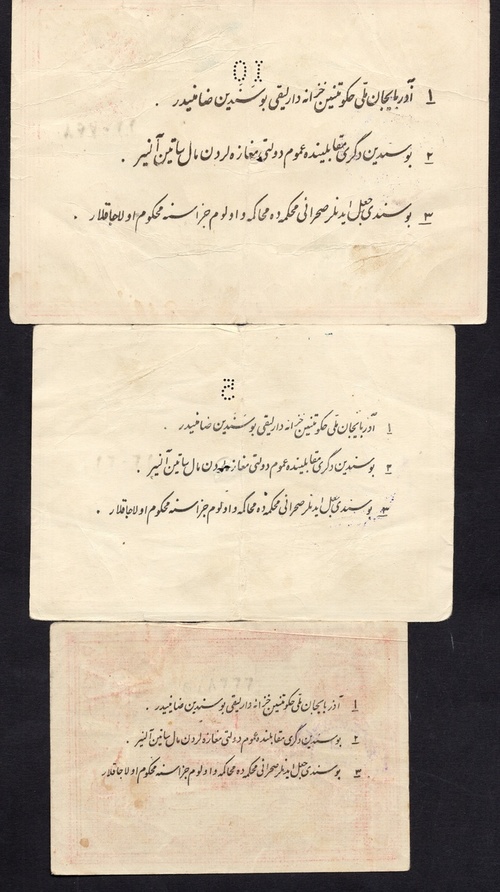 10
۱ آذربایجان ملی حکومتنین خزانه داریلقی بو سندین ضامنیدر .
۲ بو سندین دگری مقابلینده عموم دولتی مغازه لردن مال ساتین آلنیر .
۳ بو سندی جعل ایدنلر صحرائی محکمه ده محاکمه و اولوم جزاسنه محکوم اولاجاقلار .
5
۱ آذربایجان ملی حکومتنین خزانه داریلقی بو سندین ضامنیدر .
۲ بو سندین دگری مقابلینده عموم دولتی مغازه لردن مال ساتین آلنیر .
۳ بو سندی جعل ایدنلر صحرائی محکمه ده محاکمه و اولوم جزاسنه محکوم اولاجاقلار .
۱ آذربایجان ملی حکومتنین خزانه داریلقی بو سندین ضامنیدر .
۲ بو سندین دگری مقابلینده عموم دولتی مغازه لردن مال ساتین آلنیر .
۳ بو سندی جعل ایدنلر صحرائی محکمه ده محاکمه و اولوم جزاسنه محکوم اولاجاقلار